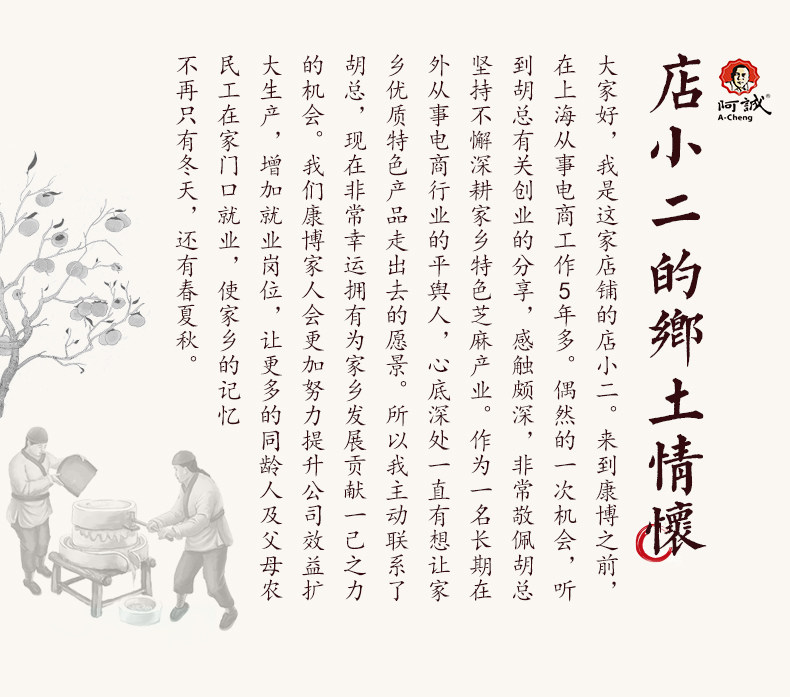 阿誠®
A-Cheng
店小二的鄉土情懷
大家好，我是这家店铺的店小二。来到康博之前，
在上海从事电商工作5年多。偶然的一次机会，听
到胡总有关创业的分享，感触颇深，非常敬佩胡总
坚持不懈深耕家乡特色芝麻产业。作为一名长期在
外从事电商行业的平舆人，心底深处一直有想让家
乡优质特色产品走出去的愿景。所以我主动联系了
胡总，现在非常幸运拥有为家乡发展贡献一己之力
的机会。我们康博家人会更加努力提升公司效益扩
大生产，增加就业岗位，让更多的同龄人及父母农
民工在家门口就业，使家乡的记忆
不再只有冬天，还有春夏秋。